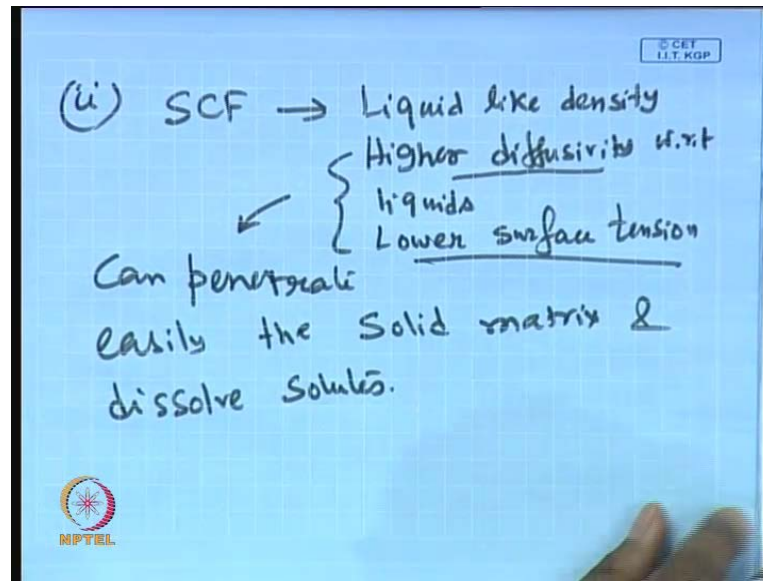 © CET
I.I.T. KGP
(ii) SCF → Liquid like density
Higher diffusivity w.r.t
liquids
Lower surface tension
Can penetrate
easily the solid matrix &
dissolve solutes.
NPTEL